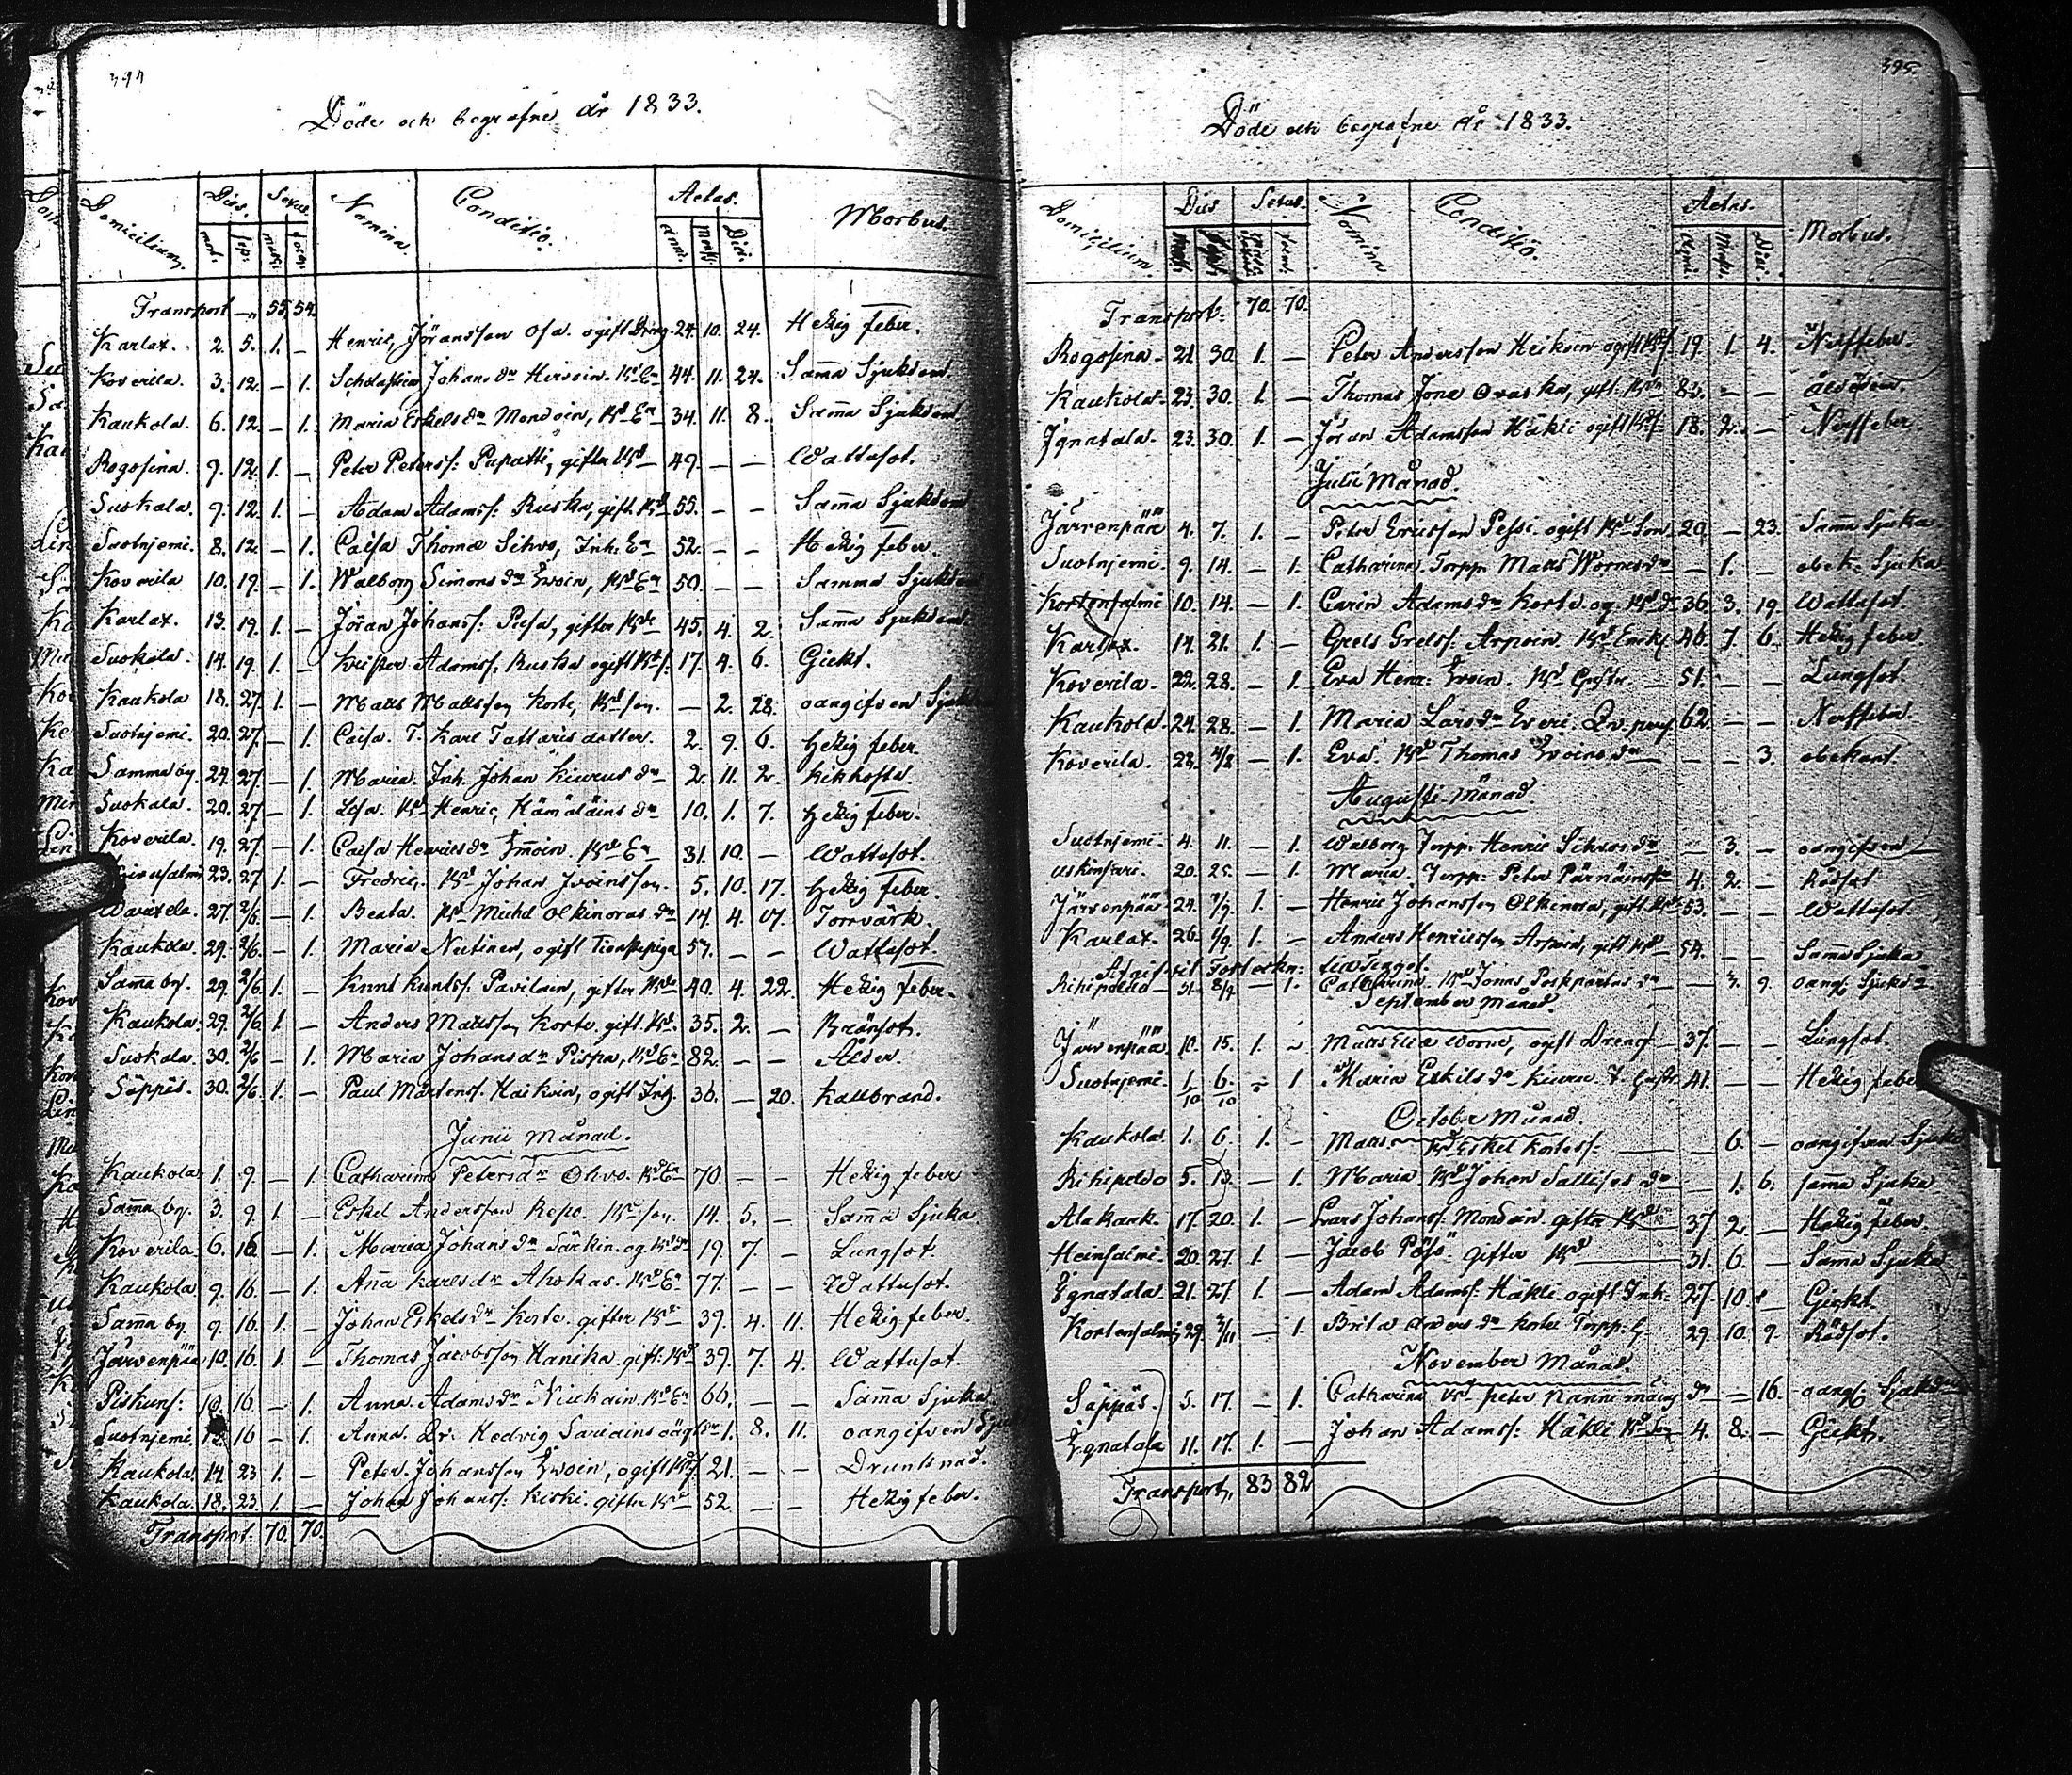 394
Döde och begrafne år 1833.
Domicilium. Dies. Sexus. Namina. Conditio. Aetas. Morbus.
mort. sep. masc. foem. anni. mens. Dies.
Transport 55. 54.
Karlax. 2. 5. 1. — Henric Jöransson ogift Dreng. 24. 10. 24. Hetzig feber.
Koverila. 3. 12. — 1. Johans dr 44. 11. 24. Samma Sjukdom
Kaukola. 6. 12. — 1. Maria Eskels dr Mondoin, Bd Ea 34. 11. 8. Samma Sjukdom
Rogosina. 9. 12. 1. — Peter Peterss: Pupatti, gifter Bd 49. — — Wattusot.
Suokala. 9. 12. 1. — Adam Adamss: Ruska, gift. Bd 55. — — Samma Sjukdom
Suotnjemi. 8. 12. — 1. Caisa Thomæ Sihvo, Inh. Ea 52. — — Hetzig feber.
Koverila 10. 19. — 1. Walborg Simons dr Ewoin, Bd Ea 50. — — Samma Sjukdom
Karlax. 13. 19. 1. — Jöran Johanss: Pusa, gifter Bde 45. 4. 2. Samma Sjukdom
Suokala. 14. 19. 1. — Adamss. Ruska ogift Bds: 17. 4. 6. Gickt.
Kaukola 18. 27. 1. — Matts Mattsson Korte, Bd son. — 2. 28. oangifven Sjuk
Suotnjemi. 20. 27. — 1. Caisa. T. Karl Tattaris dotter. 2. 9. 6. Hetzig feber
Samma by. 24. 27. — 1. Maria. Inh. Johan Kiurus dr 2. 11. 2. Kikhosta
Suokala. 20. 27. — 1. Lisa. Bd Henric Hämäläins dr 10. 1. 7. Hetzig feber.
Koverila. 19. 27. — 1. Caisa Henrics dr Immoin. Bd Ea 31. 10. — Wattusot.
23. 27 1. — Fredric. Bd Johan Iwoinsson. 5. 10. 17. Hetzig feber.
27. 2/6. — 1. Beata. Bd Michel Olkinoras dr 14. 4. 17. Torrvärk.
Kaukola 29. 2/6. — 1. Maria Nutinen, ogift Tienstepiga 57. — — Wattusot.
Samma by. 29. 2/6. 1. — Knut Knutss: Pavilain, gifter Bde 40. 4. 22. Hetzig feber.
Kaukola. 29. 2/6. 1. — Anders Matsson Korte. gift. Bd. 35. 2. — Bränsot.
Suokala. 30. 2/6 — 1. Maria Johans dr Pispa, Bd Ea 82. — — Ålder.
Säppäs. 30. 2/6. 1. — Paul Mårtenss. Haikoin, ogift Inh. 36. — 20. Kallbrand.
Junii Månad.
Kaukola 1. 9. — 1. Catharina Peters dr Ohvo. Bd Ea 70. — — Hetzig feber
Samma by. 3. 9. 1. — Eskel Andersson Repo. Bd son. 14. 5. — Samma Sjuka
Koverila 6. 16. — 1. Maria Johans dr Särkin. og. Bd dr 19. 7. — Lungsot.
Kaukola 9. 16. — 1. Anna Karls dr Ahokas. Bd Ea 77. — — Wattusot.
Samma by. 9. 16. 1. — Johan Eskels Korte. gifter Bd 39. 4. 11. Hetzig feber.
Järvenpää 10. 16. 1. — Thomas Jacobsson Hanika. gift. Bd 39. 7. 4. Wattusot.
Piskuns: 10. 16 — 1. Anna Adams dr Niukain. Bd Ea 66. — — Samma Sjuka
Suotnjemi. 16 — 1. Anna. Hedvig Sariains 1. 8. 11. oangifven Sjuk
Kaukola. 14. 23 1. — Peter. Johansson Ewoin, ogift Bd 21. — — Drunknad.
Kaukola. 18. 23. 1. — Johan Johanss: Kiski. gifter Bd 52 — — Hetzig feber.
Transport. 70. 70.
395.
Döde och begrafne år 1833.
Domicilium. Dies Sexus. Nomina Conditio. Aetas. Morbus.
Transport. 70. 70.
Rogosina 21. 30. 1. — Peter Andersson Heikoin ogift Bds. 19. 1. 4. Nerffeber.
Kaukola. 23. 30. 1. — Thomas Jona Oraska, gift. Bd 83. — —
Ignatala. 23. 30. 1. — Jöran Adamsson Häkli ogift Bds. 18. 2. — Nerffeber.
Julii Månad.
Järvenpää 4. 7. 1. — Peter Ericsson Pessi. ogift Bd Son 20. — 23. Samma Sjuka.
Suotnjemi. 9. 14. — 1. Catharina Torpp. Matts Wornes dr — 1. — obek: Sjuka
Kortensalmi 10. 14. — 1. Carin Adams dr Korte og. Bd dr 36. 3. 19. Wattusot.
Karlax. 14. 21. 1. — Grels Grelss: Arpoin. Bd Enkl 46. 7. 6. Hetzig feber
Koverila. 22. 28. — 1. Eva Henr: Ewoin. Bd 51. — — Lungsot.
Kaukola. 24. 28. — 1. Maria Lars dr 62. — — Nerffeber.
Koverila. 28. 4/8 — 1. Eva. Bd Thomas Ewoins dr — — 3. obekant.
Augusti Månad.
Suotnjemi 4. 11. — 1. Walborg Torpp. Henric Sihvos dr — 3. — oangifven
20. 25. — 1. Maria Torpp: Peter Pärnäins dr 4. 2. — Rödsot
Järvenpää 24. 1/9. 1. — Henric Johansson Olkinora, gift Bd 53. — — Wattusot
Karlax. 26. 1/9. 1. — Anders Henricsson Arpoin, gift Bd 54. — — Samma Sjuka
Afgif til Fosterkn:
Rihipoldo 31. 8/9. — 1. Catharina. Bd Jonas dr — 3. 9. oangf. Sjukd
September Månad.
Järvenpää. 10. 15. 1. — Matts Eliæ Worne, ogift Dreng 37. — — Lungsot.
Suotnjemi. 1/10 6/10 — 1 Maria Eskils dr Kiuru. 41. — — Hetzig feber
October Månad.
Kaukola 1. 6. 1. — Matts Bd Eskel Kortess: — 6. — oangifven Sjuk
Rihipoldo 5. 13. — 1. Maria. Bd Johan dr — 1. 6. samma Sjuka
Alakauk. 17. 20. 1. — Lars Johanss. Mondoin gifter Bd 37 2. — Hetzig feber.
20. 27. 1. — Jacob gifter Bd 31. 6. — Samma Sjuka
Ignatala. 21. 27. 1. — Adam Adamss: Häkli ogift Inh: 27. 10. — Gickt.
Kortensalmi 29. 3/11 — 1. Brita dr Korte Torpp: 29. 10. 9. Rödsot.
November Månad.
Säppäs. 5. 17. — 1. Catharina Bd Peter dr — — 16. oangf: Sjukdom
Ignatala 11. 17. 1. — Johan Adamss: Häkli Bd Son 4. 8. — Gickt.
Transport, 83 82